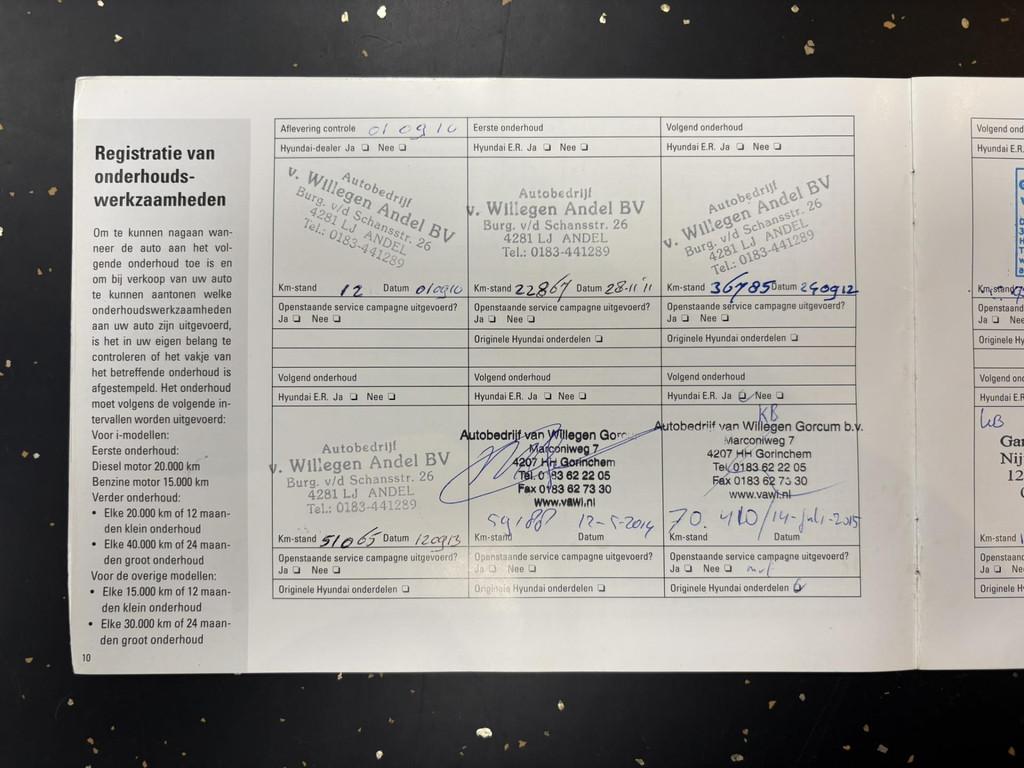 Registratie van
onderhouds-
werkzaamheden
Om te kunnen nagaan wan-
neer de auto aan het vol-
gende onderhoud toe is en
om bij verkoop van uw auto
te kunnen aantonen welke
onderhoudswerkzaamheden
aan uw auto zijn uitgevoerd,
is het in uw eigen belang te
controleren of het vakje van
het betreffende onderhoud is
afgestempeld. Het onderhoud
moet volgens de volgende in-
tervallen worden uitgevoerd:
Voor i-modellen:
Eerste onderhoud:
Diesel motor 20.000 km
Benzine motor 15.000 km
Verder onderhoud:
• Elke 20.000 km of 12 maan-
den klein onderhoud
• Elke 40.000 km of 24 maan-
den groot onderhoud
Voor de overige modellen:
• Elke 15.000 km of 12 maan-
den klein onderhoud
• Elke 30.000 km of 24 maan-
den groot onderhoud
10
Aflevering controle 010910
Hyundai-dealer Ja ❏ Nee ❏
Autobedrijf
v. Willegen Andel BV
Burg. v/d Schansstr. 26
4281 LJ ANDEL
Tel.: 0183-441289
Km-stand 12 Datum 010910
Openstaande service campagne uitgevoerd?
Ja ❏ Nee ❏
Eerste onderhoud
Hyundai E.R. Ja ❏ Nee ❏
Autobedrijf
v. Willegen Andel BV
Burg. v/d Schansstr. 26
4281 LJ ANDEL
Tel.: 0183-441289
Km-stand 22867 Datum 28-11'11
Openstaande service campagne uitgevoerd?
Ja ❏ Nee ❏
Originele Hyundai onderdelen ❏
Volgend onderhoud
Hyundai E.R. Ja ❏ Nee ❏
Autobedrijf
v. Willegen Andel BV
Burg. v/d Schansstr. 26
4281 LJ ANDEL
Tel.: 0183-441289
Km-stand 36785 Datum 240912
Openstaande service campagne uitgevoerd?
Ja ❏ Nee ❏
Originele Hyundai onderdelen ❏
Volgend onderhoud
Hyundai E.R. Ja ❏ Nee ❏
Autobedrijf
v. Willegen Andel BV
Burg. v/d Schansstr. 26
4281 LJ ANDEL
Tel.: 0183-441289
Km-stand 51065 Datum 120913
Openstaande service campagne uitgevoerd?
Ja ❏ Nee ❏
Originele Hyundai onderdelen ❏
Volgend onderhoud
Hyundai E.R. Ja ❏ Nee ❏
Autobedrijf van Willegen Gorc
Marconiweg 7
4207 HH Gorinchem
Tel. 0183 62 22 05
Fax 0183 62 73 30
www.vawi.nl
59188 12-5-2014
Km-stand Datum
Openstaande service campagne uitgevoerd?
Ja ❏ Nee ❏
Originele Hyundai onderdelen ❏
Volgend onderhoud
Hyundai E.R. Ja ❏ Nee ❏
KB
Autobedrijf van Willegen Gorcum b.v.
Marconiweg 7
4207 HH Gorinchem
Tel. 0183 62 22 05
Fax 0183 62 73 30
www.vawi.nl
70.410/14-juli-2015
Km-stand Datum
Openstaande service campagne uitgevoerd?
Ja ❏ Nee ❏
Originele Hyundai onderdelen
Volgend ond
Hyundai E.R.
Km-stand
Openstaand
Ja ❏ Nee
Originele Hy
Volgend ond
Hyundai E.R
KB
Gar
Nij
12
Km-stand
Openstaand
Ja ❏ Nee
Originele H